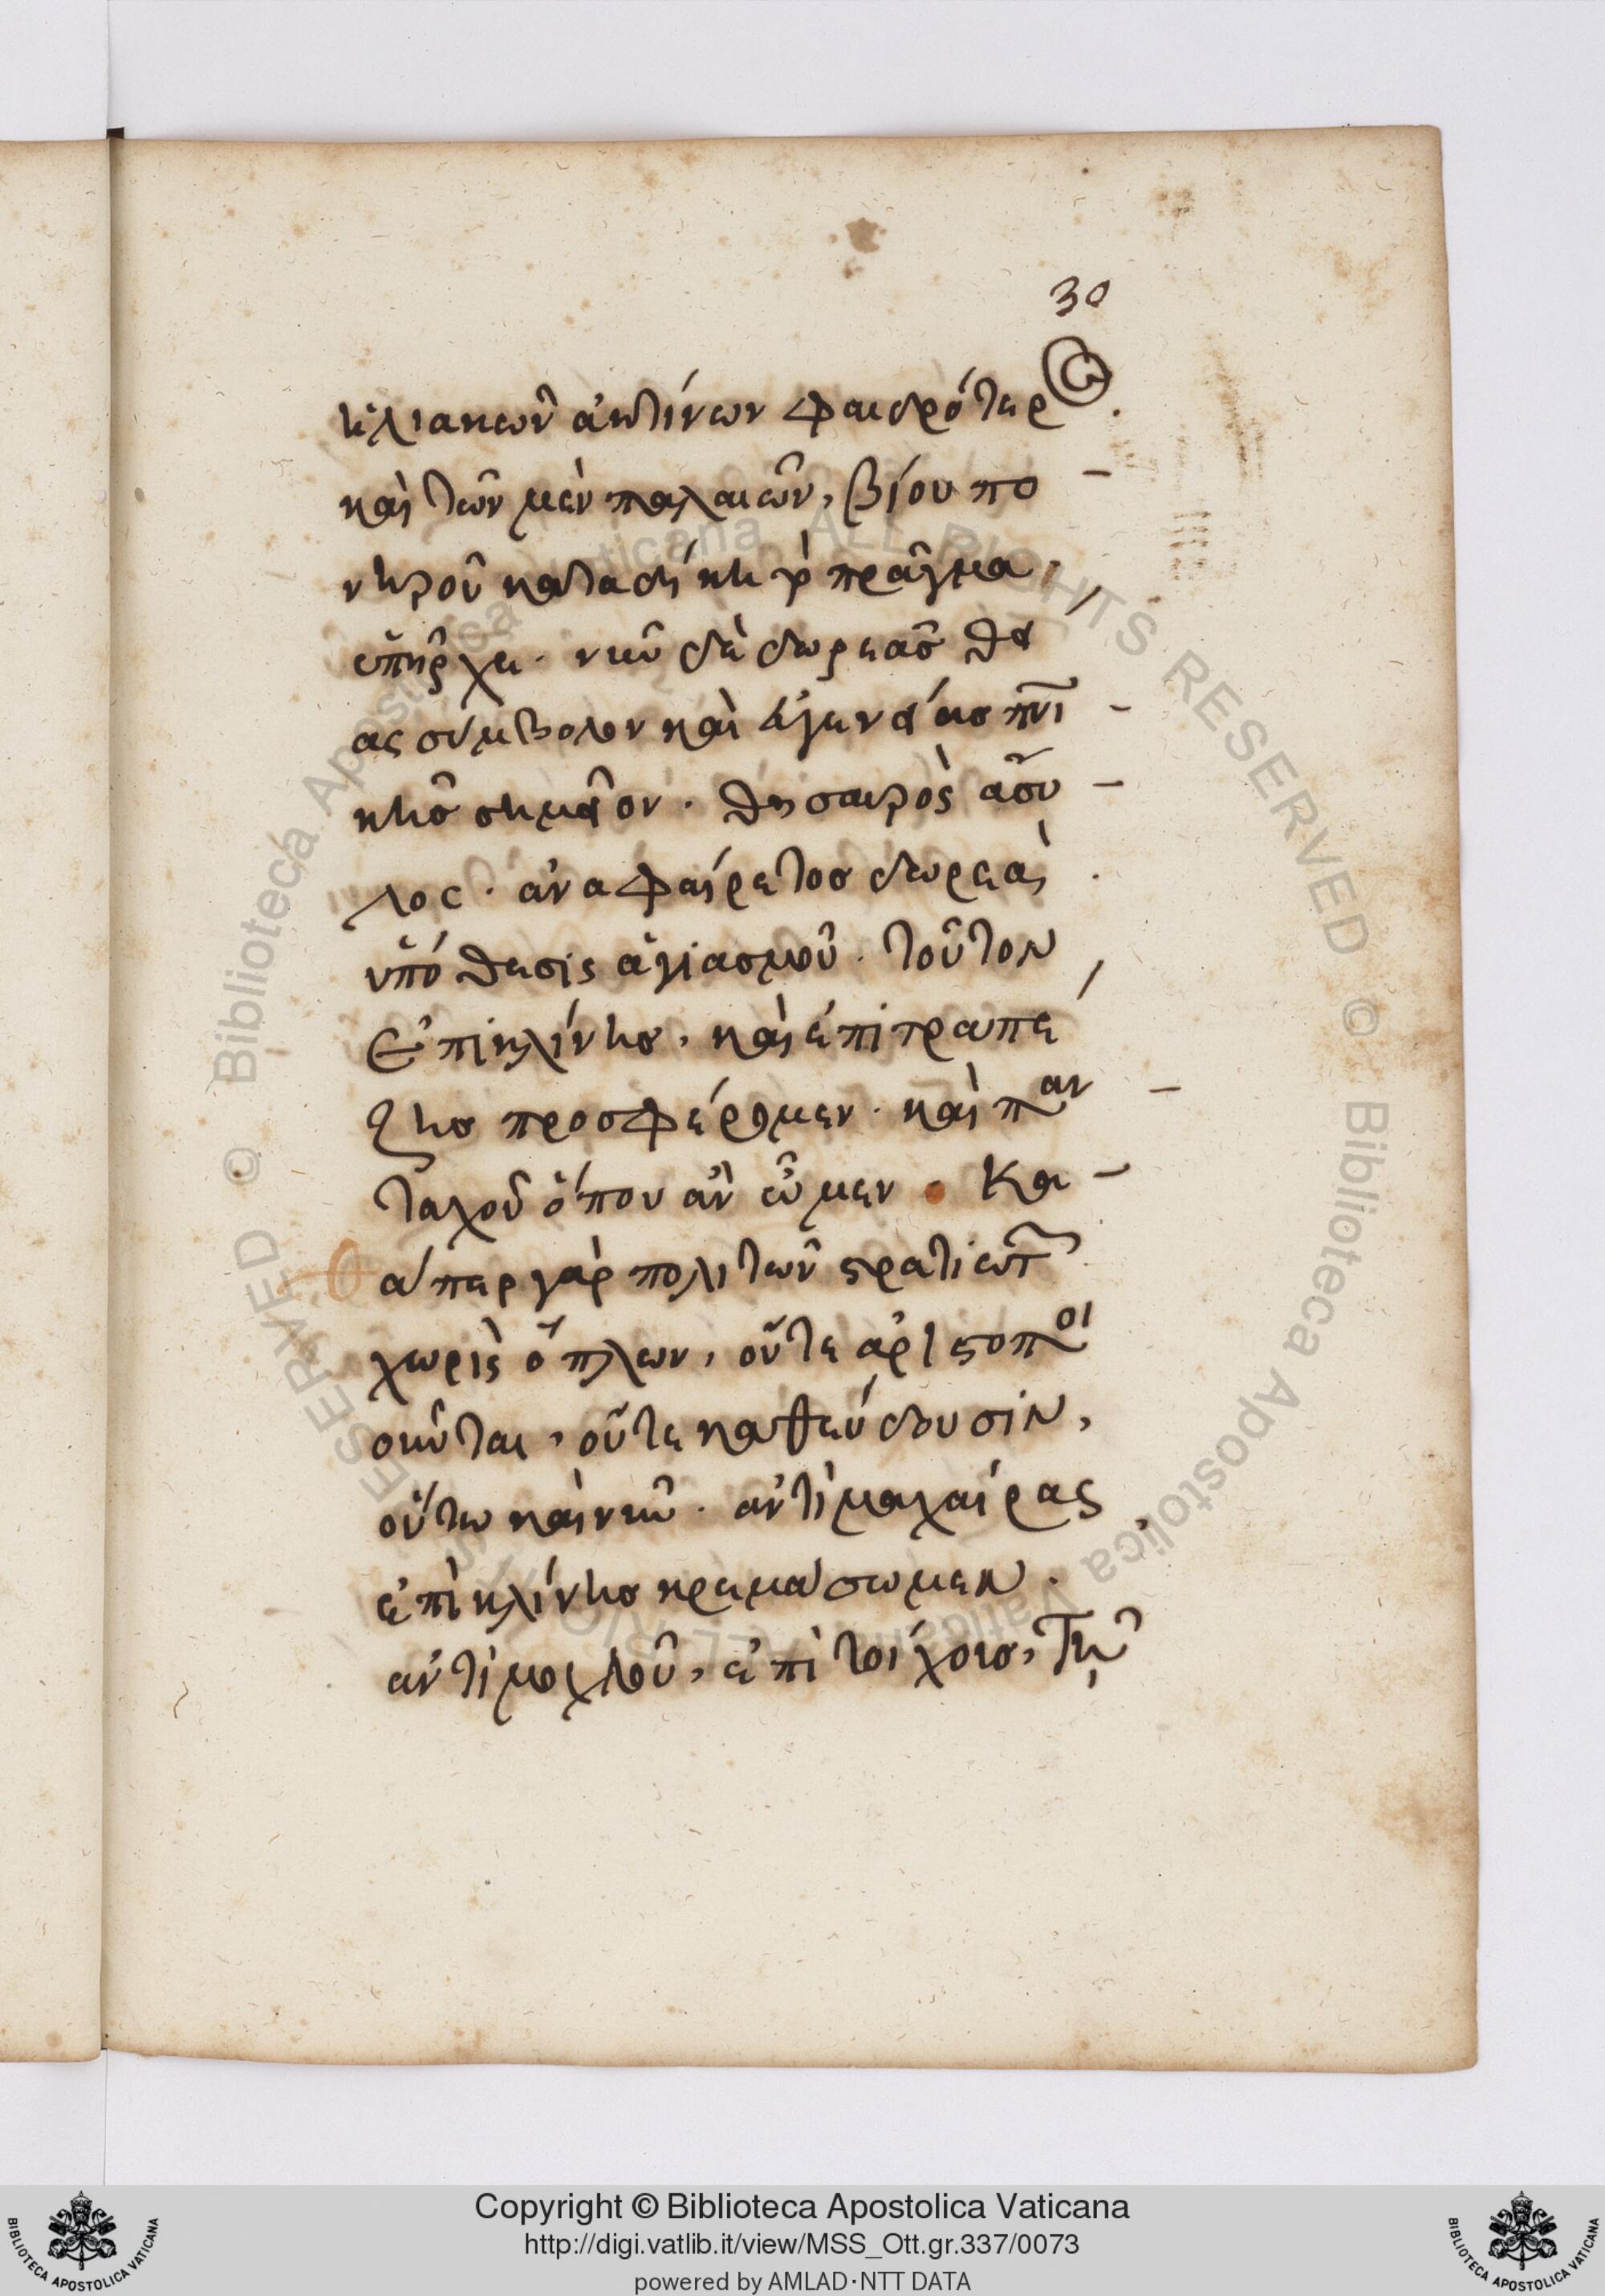 30
ἡλιακῶν ἀκτίνων φαιδρότερ
καὶ τῶν μὲν παλαιῶν, βίου πο
νηροῦ καταδίκη τὸ πρᾶγμα
ὑπῆρχε. νῦν δὲ δωρεᾶς θεί
ας σύμβολον καὶ εὐγενείας πνι
κῆς σημεῖον. θησαυρὸς ἄσυ
λος. ἀναφαίρετος δωρεὰ
ὑπόθεσις ἁγιασμοῦ. τοῦτον
ἐπὶ κλίνης, καὶ ἐπὶ τραπε
ζης προσφέρομεν. καὶ παν
ταχοῦ ὅπου ἂν ὦμεν. Κα
θάπερ γὰρ πολιτῶν στρατιωτ
χωρὶς ὅπλων, οὔτε ἀριστοποι
οῦνται, οὔτε καθεύδουσιν,
οὕτω καὶ νῦν. ἀντὶ μαχαίρας
ἐπὶ κλίνης κρεμάσωμεν.
ἀντὶ μοχλοῦ, ἐπὶ τοίχοις, τῆ
Copyright © Biblioteca Apostolica Vaticana
http://digi.vatlib.it/view/MSS_Ott.gr.337/0073
powered by AMLAD·NTT DATA
BIBLIOTECA APOSTOLICA VATICANA
BIBLIOTECA APOSTOLICA VATICANA
© Biblioteca Apostolica Vaticana ALL RIGHTS RESERVED
© Biblioteca Apostolica Vaticana ALL RIGHTS RESERVED